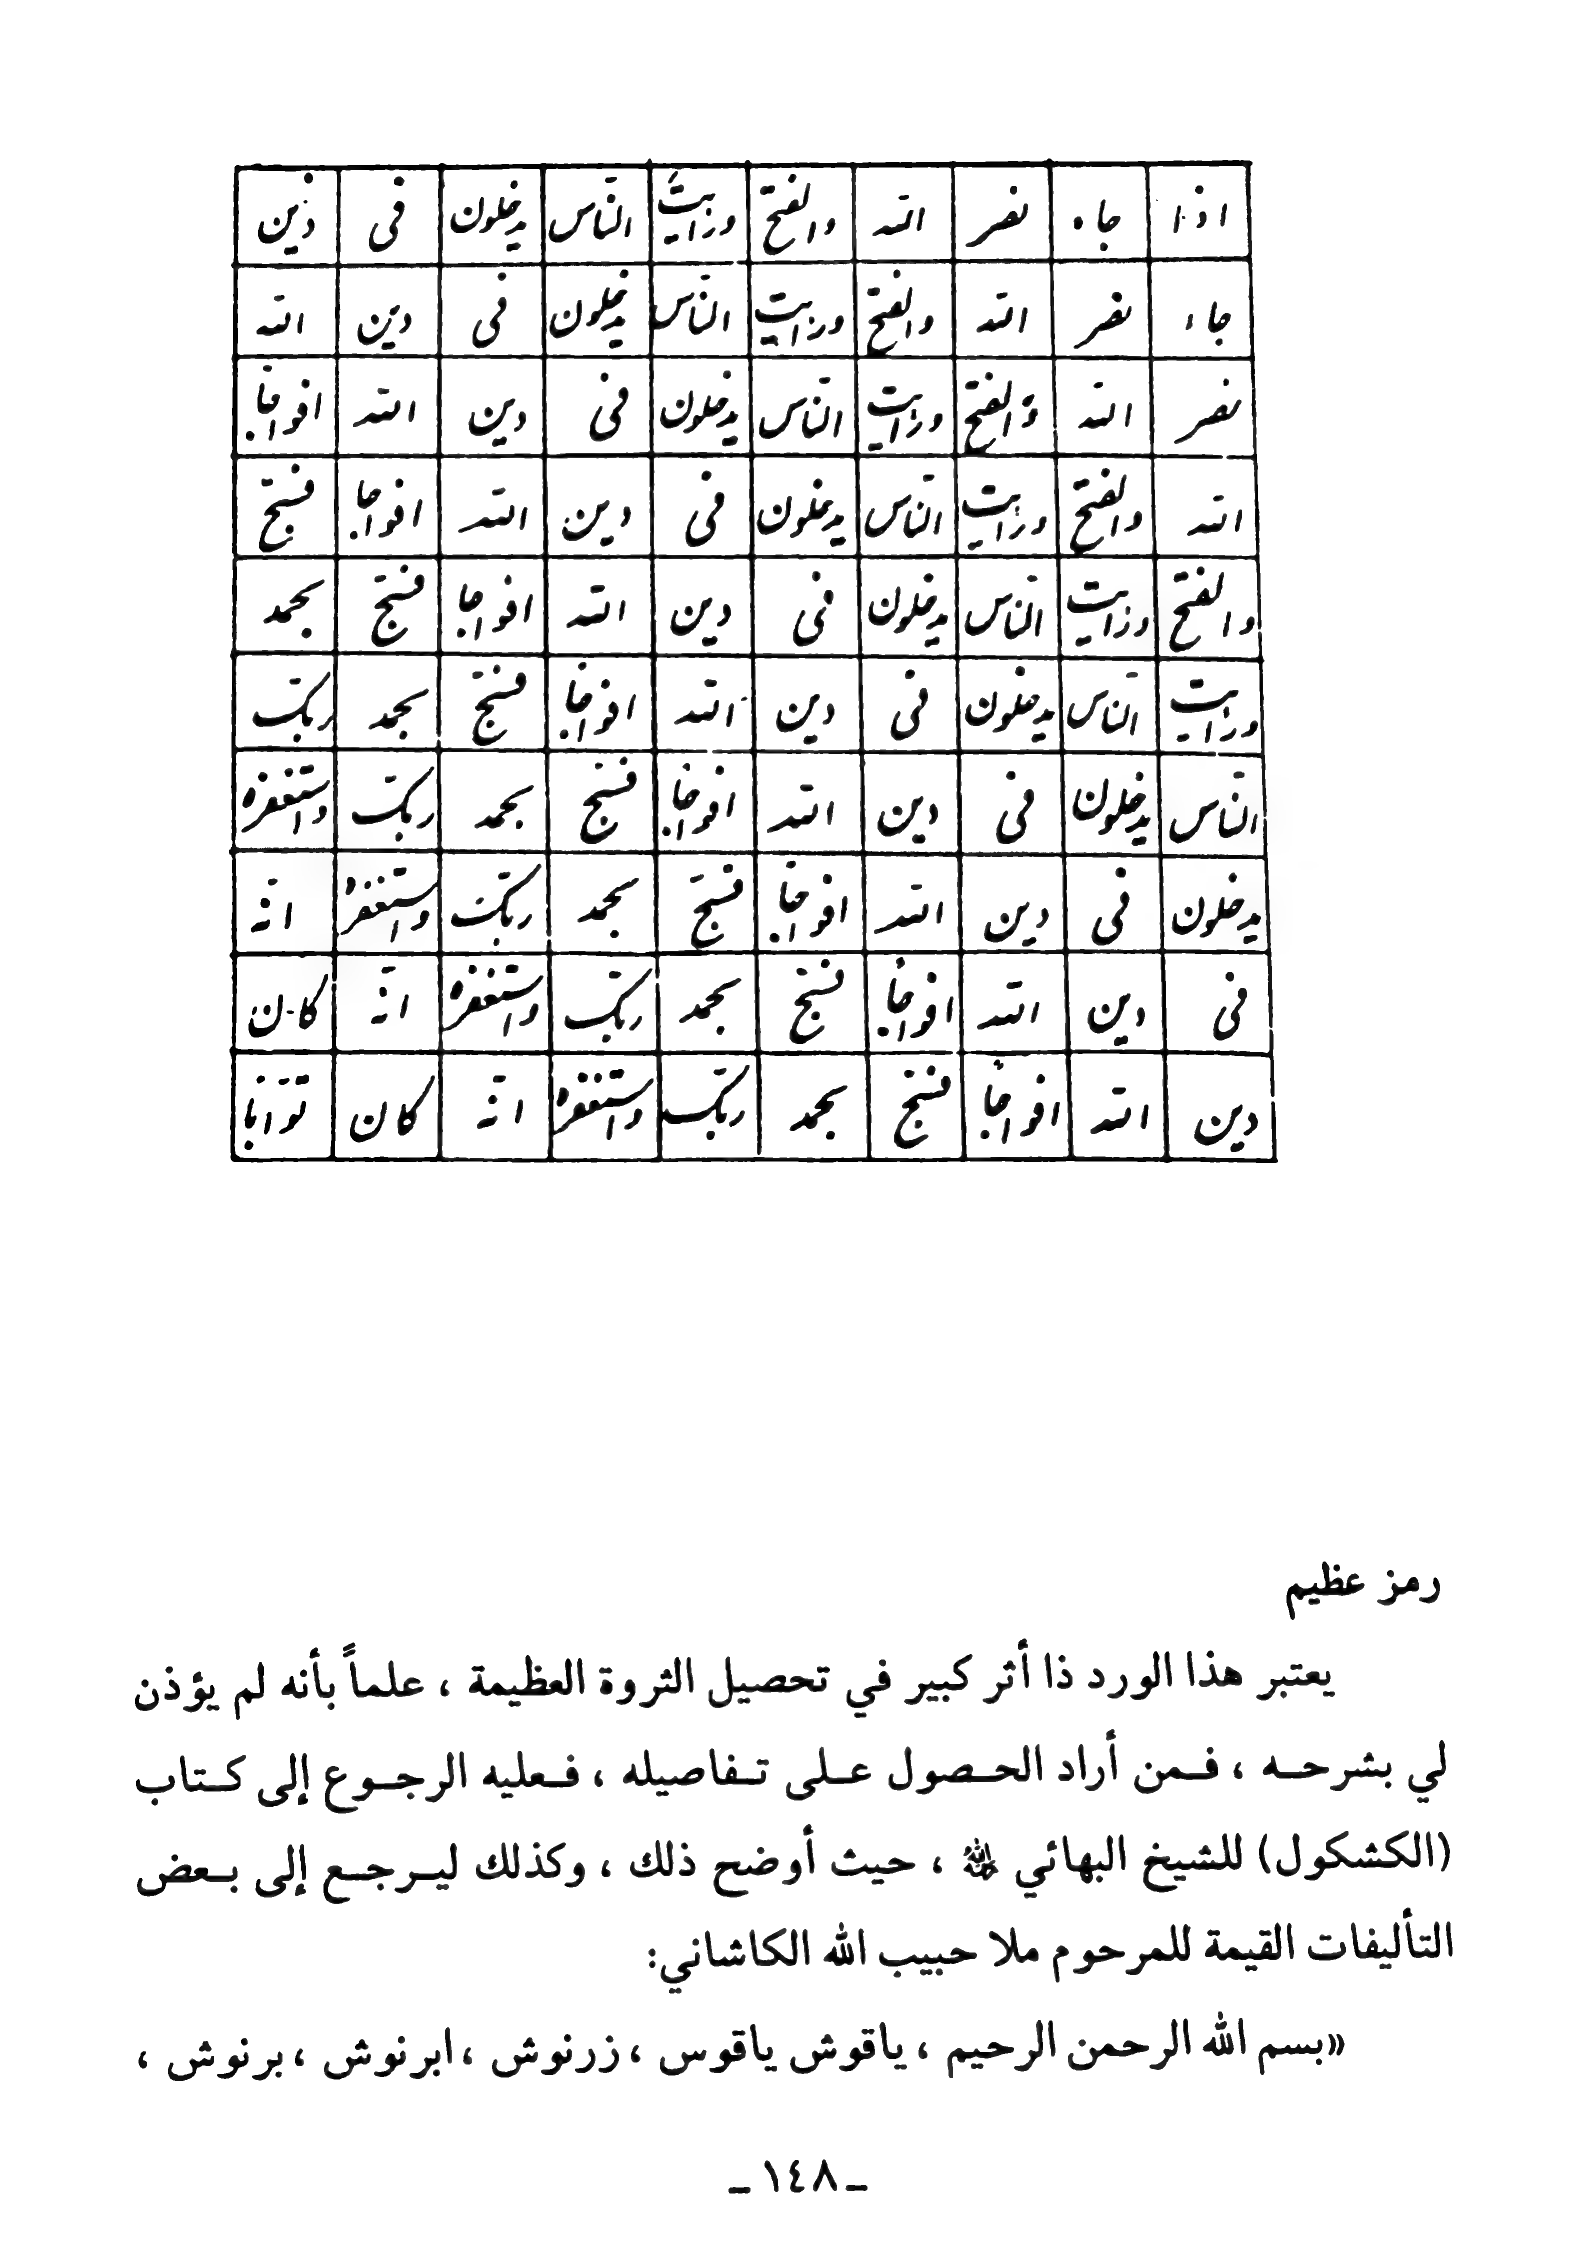 اذا جاء نصر الله والفتح ورایت النّاس یدخلون فی دین
جاء نصر الله والفتح ورایت النّاس یدخلون فی دین الله
نصر الله والفتح ورایت النّاس یدخلون فی دین الله افواجا
الله والفتح ورایت النّاس یدخلون فی دین الله افواجا فسبّح
والفتح ورایت النّاس یدخلون فی دین الله افواجا فسبّح بحمد
ورایت النّاس یدخلون فی دین الله افواجا فسبّح بحمد ربّک
النّاس یدخلون فی دین الله افواجا فسبّح بحمد ربّک واستغفره
یدخلون فی دین الله افواجا فسبّح بحمد ربّک واستغفره انّه
فی دین الله افواجا فسبّح بحمد ربّک واستغفره انّه کان
دین الله افواجا فسبّح بحمد ربّک واستغفره انّه کان توّابا
رمز عظيم
يعتبر هذا الورد ذا أثر كبير في تحصيل الثروة العظيمة ، علماً بأنه لم يؤذن
لي بشرحه ، فمن أراد الحصول على تفاصيله ، فعليه الرجوع إلى كتاب
(الكشكول) للشيخ البهائي ، حيث أوضح ذلك ، وكذلك ليرجع إلى بعض
التأليفات القيمة للمرحوم ملا حبيب الله الكاشاني:
«بسم الله الرحمن الرحيم ، ياقوش ياقوس ، زرنوش ، ابرنوش ، برنوش ،
ـ ١٤٨ ـ